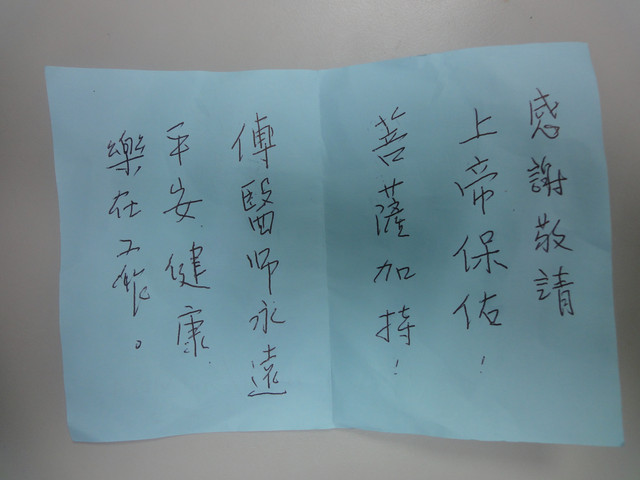 感謝敬請
上帝保佑！
菩薩加持！
傅醫师永遠
平安健康
樂在工作。